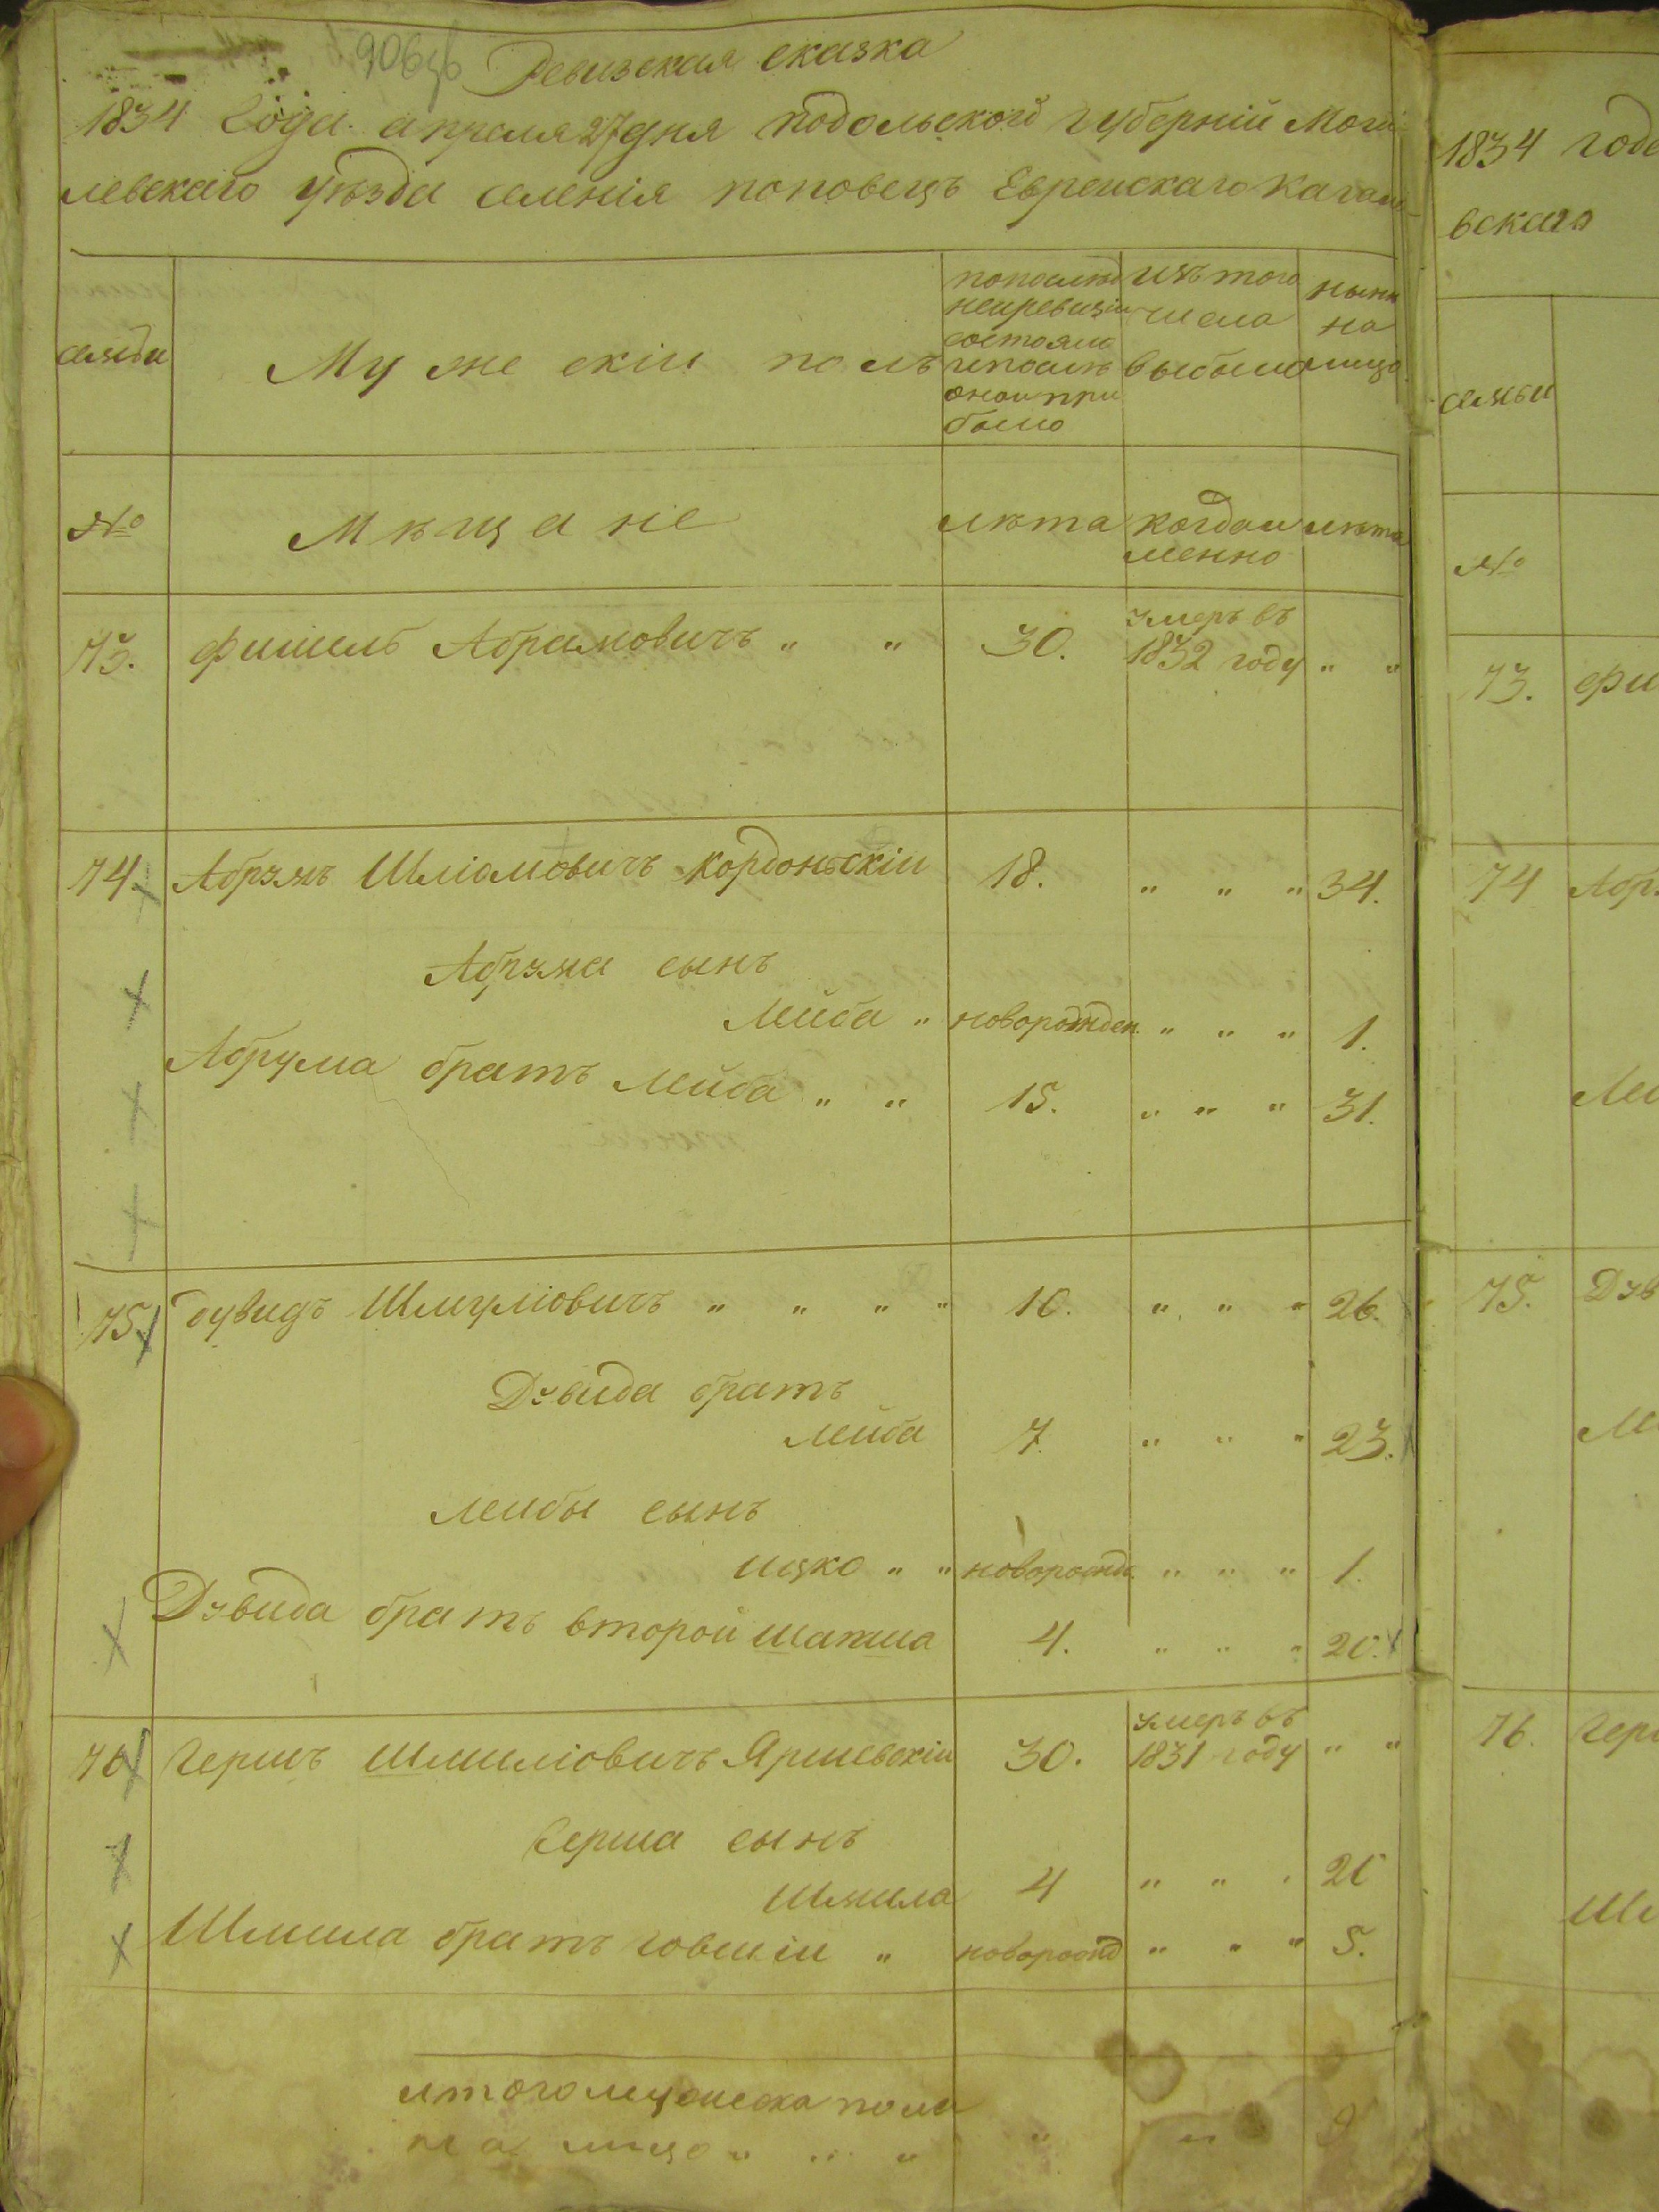 Ревизская сказка
1834 Года апреля 27 дня подольской Губерніи Моги-
левскаго уѣзда селенія поповецъ Еврейскаго Кагала
семьи
Мужескій полъ
попослѣд
неиревизіи
состояло
ипослѣ
онои при
было
изъ того
числа
выбыло
нынѣ
на
лицо
№
Мѣщане
лѣта
когда и
менно
лѣта
73. Фишель Абрамовичъ " " 30. умеръ въ
1832 году " "
74. Абрумъ Шліомовичъ Кордонскіи 18. " " " 34.
Абрума сынъ
Лейба " новорожден. " " " 1.
Абрума братъ Лейба " " 15. " " " 31.
75. Дувидъ Шмуліовичъ " " " " 10. " " " 26.
Дувида братъ
Лейба 7. " " " 23.
Лейбы сынъ
Ицко " " новорожде " " " 1.
Дувида братъ второй Шапша 4. " " " 20.
76 Гершъ Шмиліовичъ Яришевскіи 30. умеръ въ
1831 году " "
Герша сынъ
Шмила 4 " " " 20
Шмила братъ Іовшіи " новорожд " " " 5.
итого мужеска пола
на лицо " " " " " 9
1834 годо
вскаго
семьи
№
73. Фи
74 Абр
Леи
75. Дув
Ле
76. Гер
Шм